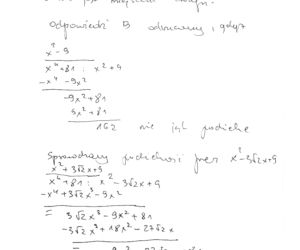 odpowiedzi B odrzucamy, gdyż
x² - 9
x⁴ + 81 : x² + 9
-x⁴ - 9x²
-9x² + 81
9x² + 81
162 nie jest podzielne
Sprawdzamy podzielność przez x² - 3√2x + 9
x² + 3√2x + 9
x⁴ + 81 : x² - 3√2x + 9
-x⁴ + 3√2x³ - 9x²
= 3√2x³ - 9x² + 81
-3√2x³ + 18x² - 27√2x